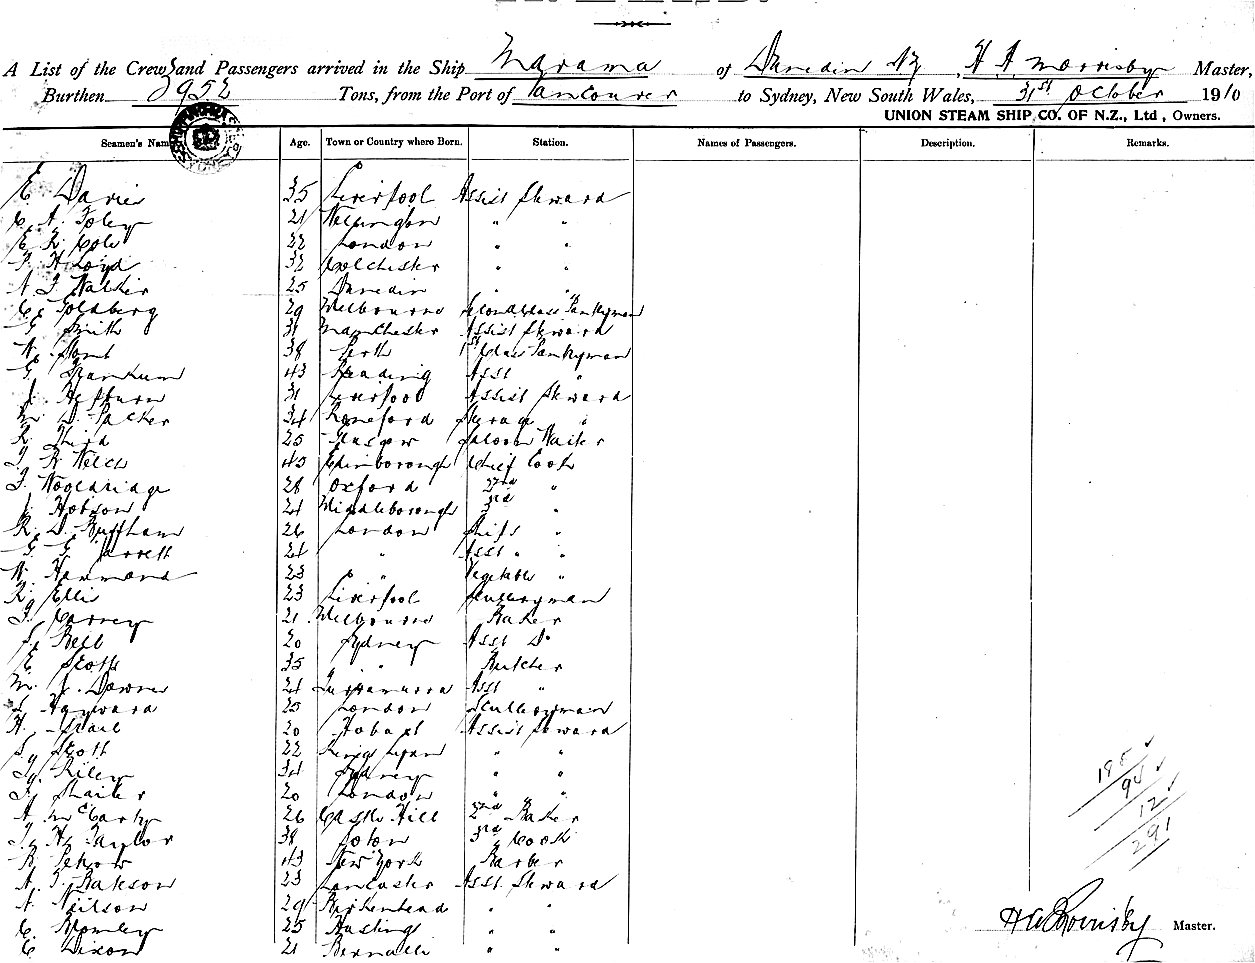 A List of the Crew and Passengers arrived in the Ship Marama of Dunedin NZ, H A Morrisby Master,
Burthen 3952 Tons, from the Port of Vancouver to Sydney, New South Wales, 31st October 1910
UNION STEAM SHIP CO. OF N.Z., Ltd, Owners.
Seamen's Nam Age. Town or Country where Born. Station. Names of Passengers. Description. Remarks.
E. Davies 35 Liverpool Assist Steward
C. A. Foley 21 Wellington " "
E. R. Cole 22 London " "
F. H. Loyd 32 Colchester " "
A. J. Walker 25 Dunedin " "
C. Goldberg 29 Melbourne Second Class Pantryman
G. Smith 31 Manchester Assist Steward
W. 38 Perth 1st Class Pantryman
G. 43 Reading Asst "
J. Hepburn 31 Liverpool Assist Steward
M. D. Packer 34 Romford Steerage "
R. Third 25 Glasgow Saloon Waiter
J. R. Welch 45 Edinborough Chief Cook
J. Wooldridge 28 Oxford 2nd "
J. Hobson 24 Middleborough 3rd "
R. D. Buffham 26 London Ships "
G. G. Jarrett 24 " Asst " "
W. Hammond 23 " Vegetable "
R. Ellis 23 Liverpool Sculleryman
J. Carney 21 Melbourne Baker
S. Bell 20 Sydney Asst Do
E. Scott 35 " Butcher
M. J. Downs 24 Turramurra Asst "
S. Hayward 25 London Sculleryman
H. Searl 20 Hobart Assist Steward
S. Scott 22 Kings Lynn " "
J. Riley 34 Sydney " "
J. Slater 20 London " "
A. McCarty 26 Castle Hill 2nd Baker
J. H. Taylor 38 Soton 3rd Cook
R. 43 New York Barber
A. J. Bateson 23 Lancaster Asst Steward
A. Neilson 29 Birkenhead " "
C. Bromley 25 Hastings " "
C. Dixon 21 " "
185
94
12
291
H A Morrisby Master.